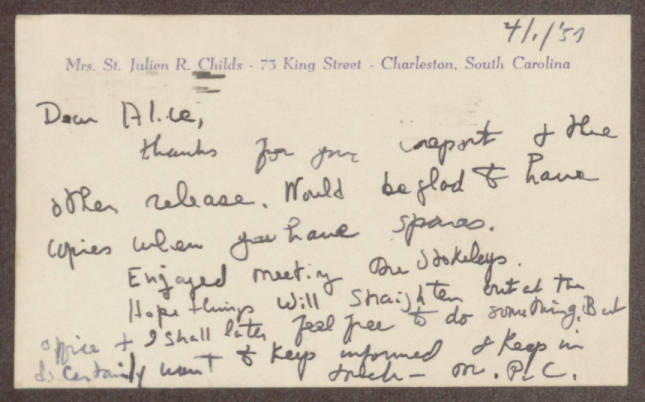 4/1/'57
Mrs. St. Julien R. Childs - 73 King Street - Charleston, South Carolina
Dear Alice,
thanks for your report & the
other release. Would be glad to have
copies when you have spares.
Enjoyed meeting the Stokeleys.
Hope things will straighten out at the
office & I shall later feel free to do something. But
do certainly want to keep informed & keep in
touch — M. P. C.